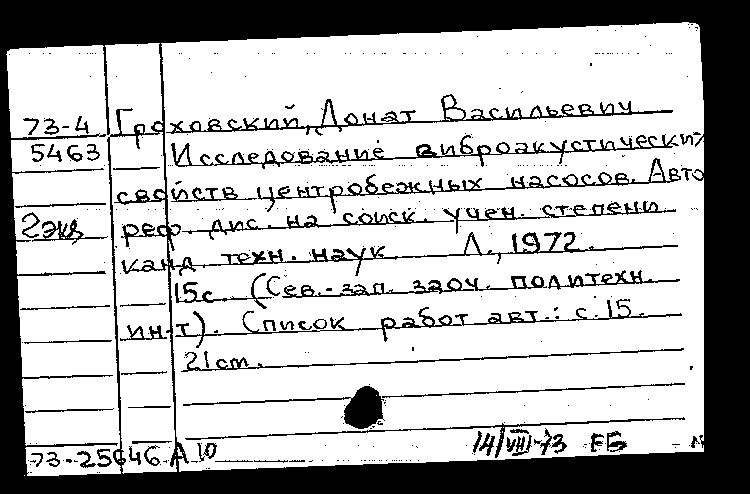 73-4 Гроховский, Донат Васильевич
5463 Исследование виброакустических
свойств центробежных насосов. Авто
2 экз реф. дис. на соиск. учен. степени
канд. техн. наук. Л., 1972.
15с. (Сев.-зап. заоч. политехн.
ин-т). Список работ авт.: с. 15.
21 см.
73-25646 А 10 14/VIII-73 ЕБ